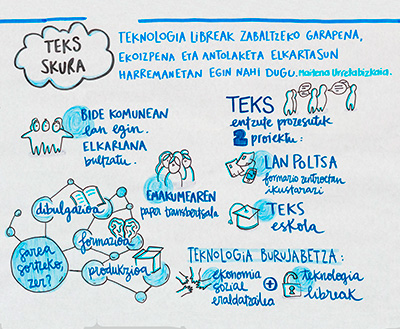 TEKS
SKURA
TEKNOLOGIA LIBREAK ZABALTZEKO GARAPENA,
EKOIZPENA ETA ANTOLAKETA ELKARTASUN
HARREMANETAN EGIN NAHI DUGU. Maitena Urrelabizkaia.
BIDE KOMUNEAN
lan egin.
ELKARLANA
bultzatu.
EMAKUMEAREN
papera transbertsala
TEKS
entzute prozesutik
2 proiektu:
LAN POLTSA
formazio zentroetan
ikustarazi
TEKS
eskola
dibulgazioa
formazioa
produkzioa
Saren
sorrerako,
zer?
TEKNOLOGIA BURUJABETZA:
ekonomia
sozial
eraldatzailea
+
teknologia
libreak